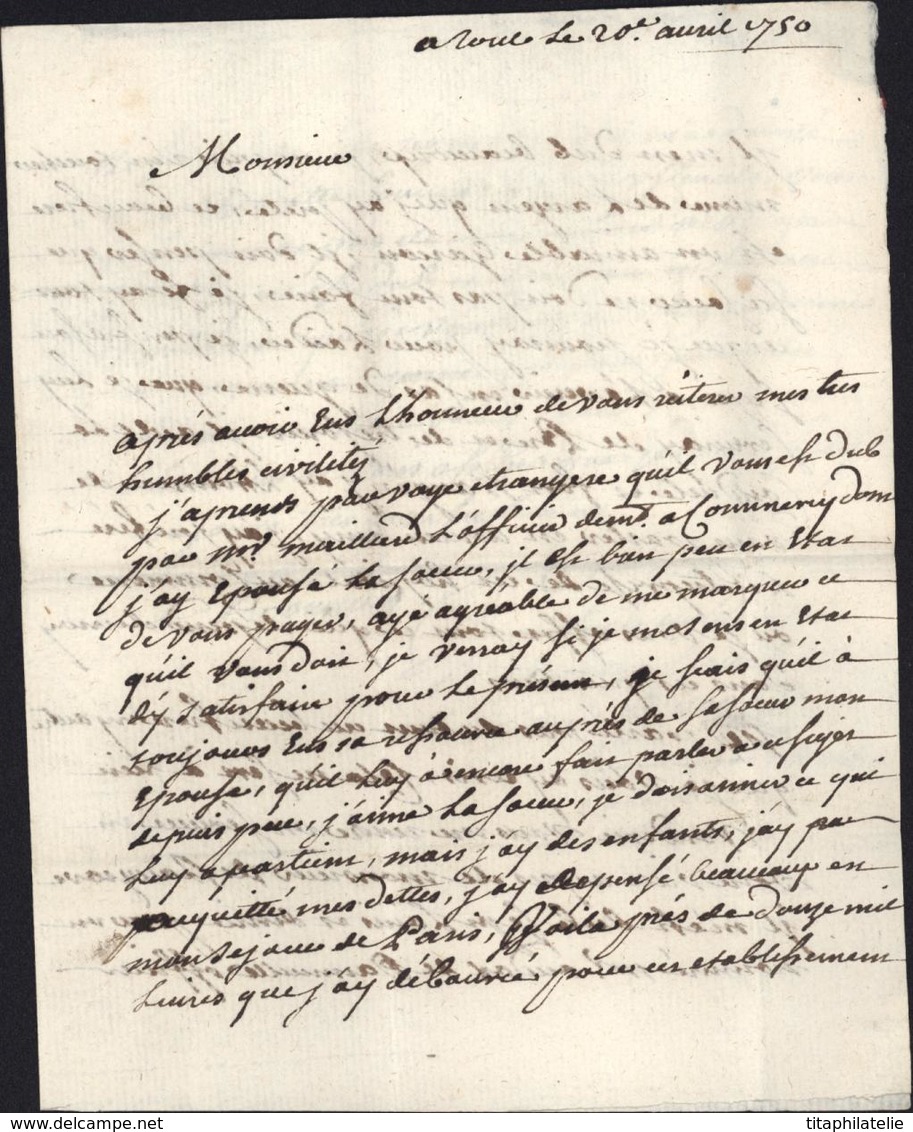 a Toul le 20e. avril 1750
Monsieur
aprés avoir Eus L'honneur de vous réiterer mes tres
humbles civilités
j'aprends par voye etrangere qu'il vous est dub
par mr. maillard L'officier de mt. a Commercy dont
j'ay Epousé La soeur, jl est bien peu en Etat
de vous payer, ayé agréable de me marquer ce
qu'il vous doit, je verray si je me sens en Etat
d'y satisfaire pour Le présent, je scais qu'il à
toujours Eus sa ressource auprés de sa soeur mon
Epouse, qu'il Luy à encore fait parler a ce sujet
depuis peu, j'aime La soeur, je dois aimer ce qui
Luy apartient, mais j'ay des enfants, j'ay pas
acquitté mes dettes, j'ay depensé beaucoup en
mon sejour de Paris, Voila prés de douze mil
Livres que j'ay débourcé pour cet etablissement
titaphilatelie